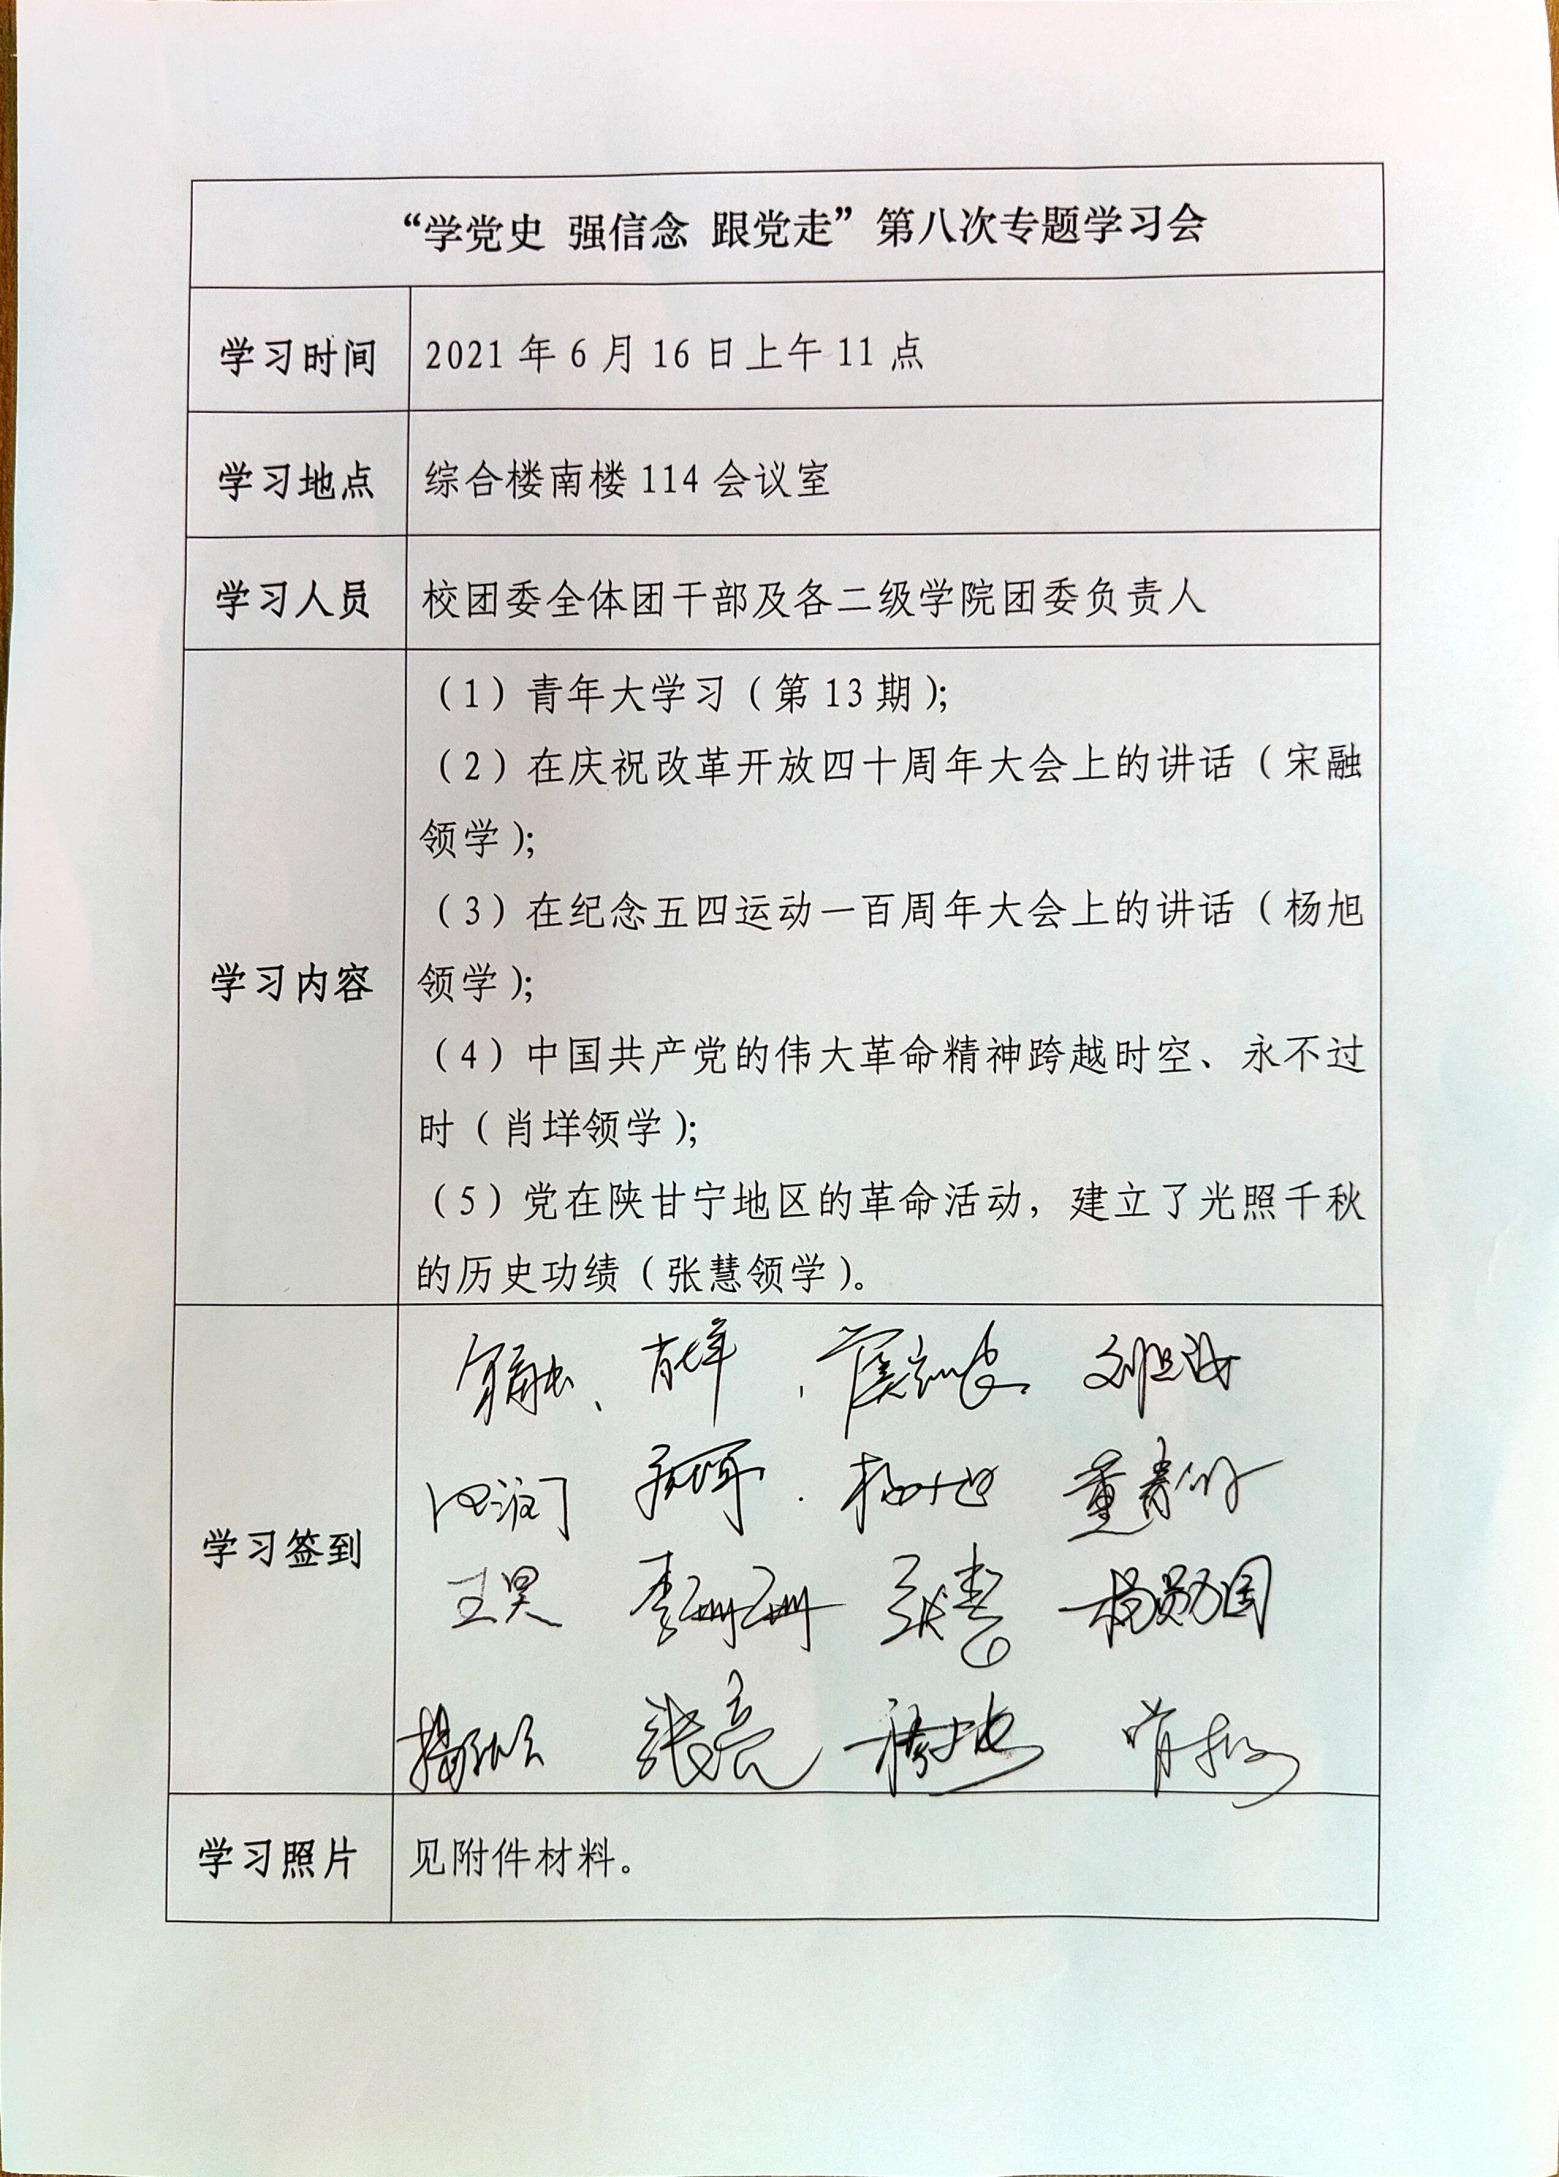 “学党史 强信念 跟党走”第八次专题学习会
学习时间
2021 年 6 月 16 日上午 11 点
学习地点
综合楼南楼 114 会议室
学习人员
校团委全体团干部及各二级学院团委负责人
学习内容
（1）青年大学习（第 13 期）；
（2）在庆祝改革开放四十周年大会上的讲话（宋融
领学）；
（3）在纪念五四运动一百周年大会上的讲话（杨旭
领学）；
（4）中国共产党的伟大革命精神跨越时空、永不过
时（肖垟领学）；
（5）党在陕甘宁地区的革命活动，建立了光照千秋
的历史功绩（张慧领学）。
学习签到
宋融、 肖垟
杨旭
王昊 李珊珊 张慧 杨勋国
张亮
学习照片
见附件材料。